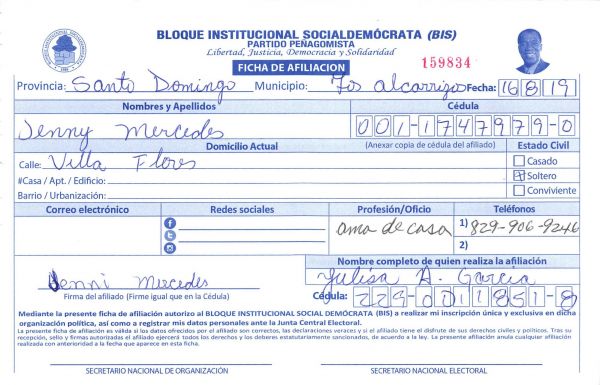 BLOQUE INSTITUCIONAL SOCIALDEMÓCRATA (BIS)
PARTIDO PEÑAGOMISTA
Libertad, Justicia, Democracia y Solidaridad
FICHA DE AFILIACION
159834
Provincia: Santo Domingo Municipio: Los alcarrizos Fecha: 16 8 19
Nombres y Apellidos Cédula
Jenny Mercedes 001-1747979-0
Domicilio Actual (Anexar copia de cédula del afiliado) Estado Civil
Calle: Villa Flores Casado
#Casa / Apt. / Edificio: Soltero
Barrio / Urbanización: Conviviente
Correo electrónico Redes sociales Profesión/Oficio Teléfonos
ama de casa 1) 829-906-9246
2)
Nombre completo de quien realiza la afiliación
Jenni Mercedes Yulisa A. Garcia
Firma del afiliado (Firme igual que en la Cédula) Cédula: 223-0011851-8
Mediante la presente ficha de afiliación autorizo al BLOQUE INSTITUCIONAL SOCIAL DEMÓCRATA (BIS) a realizar mi inscripción única y exclusiva en dicha
organización política, así como a registrar mis datos personales ante la Junta Central Electoral.
La presente ficha de afiliación es válida si los datos ofrecidos por el afiliado son correctos, las declaraciones veraces y si el afiliado tiene el disfrute de sus derechos civiles y políticos. Tras su
recepción, sello y firmas autorizadas el afiliado ejercerá todos los derechos y los deberes estatutariamente sancionados, de acuerdo a la ley. La presente afiliación anula cualquier afiliación
realizada con anterioridad a la fecha que aparece en esta ficha.
SECRETARIO NACIONAL DE ORGANIZACIÓN SECRETARIO NACIONAL ELECTORAL